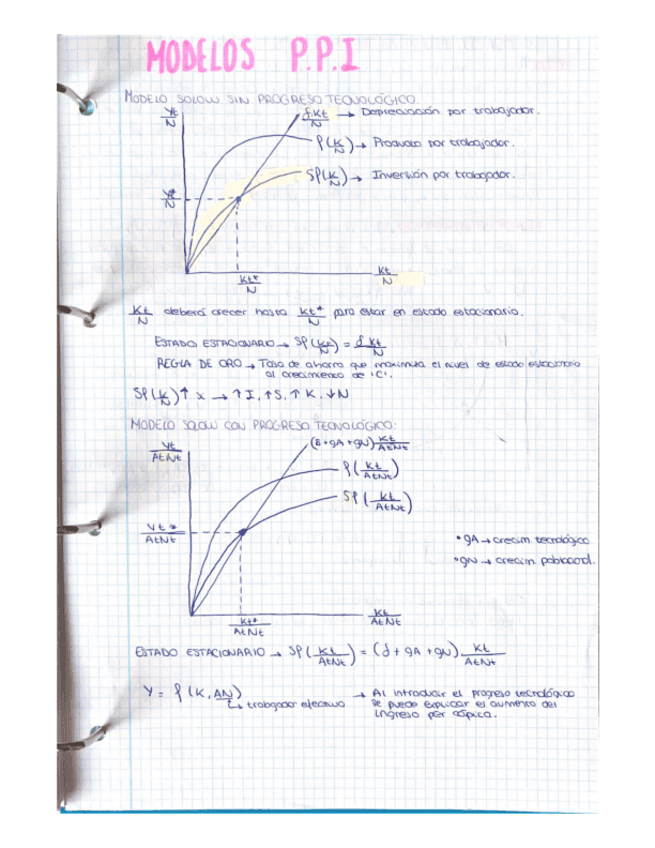 MODELOS P.P.I
MODELO SOLOW SIN PROGRESO TECNOLÓGICO
Yt/N
δKt/N → Depreciación por trabajador.
f(K/N) → Producto por trabajador.
Sf(K/N) → Inversión por trabajador.
Yt*/N
Kt*/N
Kt/N
Kt/N deberá crecer hasta Kt*/N para estar en estado estacionario.
ESTADO ESTACIONARIO → Sf(Kt/N) = δ Kt/N
REGLA DE ORO → Tasa de ahorro que maximiza el nivel de estado estacionario
al crecimiento de 'C'.
Sf(K/N)↑ x → ↑I, ↑S, ↑K, ↓N
MODELO SOLOW CON PROGRESO TECNOLÓGICO:
Yt/AtNt
(δ+gA+gN) Kt/AtNt
f(Kt/AtNt)
Sf(Kt/AtNt)
Yt*/AtNt
• gA → crecim tecnológico
• gN → crecim. poblacional.
Kt*/AtNt
Kt/AtNt
ESTADO ESTACIONARIO → Sf(Kt/AtNt) = (δ + gA + gN) Kt/AtNt
Y = f(K, AN)
↳ trabajador efectivo
→ Al introducir el progreso tecnológico
se puede explicar el aumento del
ingreso per cápica.